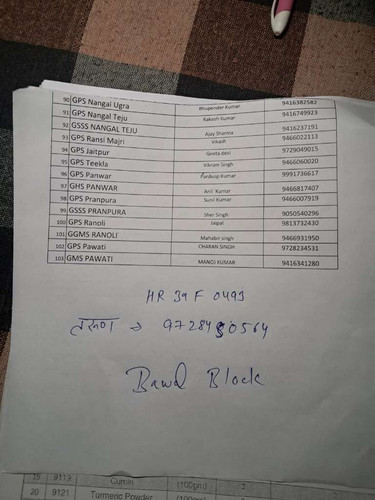 90 GPS Nangai Ugra Bhupender Kumar 9416382582
91 GPS Nangal Teju Rakesh Kumar 9416749923
92 GSSS NANGAL TEJU Ajay Sharma 9416237191
93 GPS Ransi Majri Vikash 9466022113
94 GPS Jaitpur Geeta devi 9729049015
95 GPS Teekla Vikram Singh 9466060020
96 GPS Panwar Pardeep Kumar 9991736617
97 GHS PANWAR Anil Kumar 9466817407
98 GPS Pranpura Sunil Kumar 9466007919
99 GSSS PRANPURA Sher Singh 9050540296
100 GPS Ranoli Jaipal 9813732430
101 GGMS RANOLI Mahabir singh 9466931950
102 GPS Pawati CHARAN SINGH 9728234531
103 GMS PAWATI MANOJ KUMAR 9416341280
HR 39 F 0493
→ 9728480564
Bawal Block
19 9113 Cumin (100gm)
20 9121 Turmeric Powder (100gm)